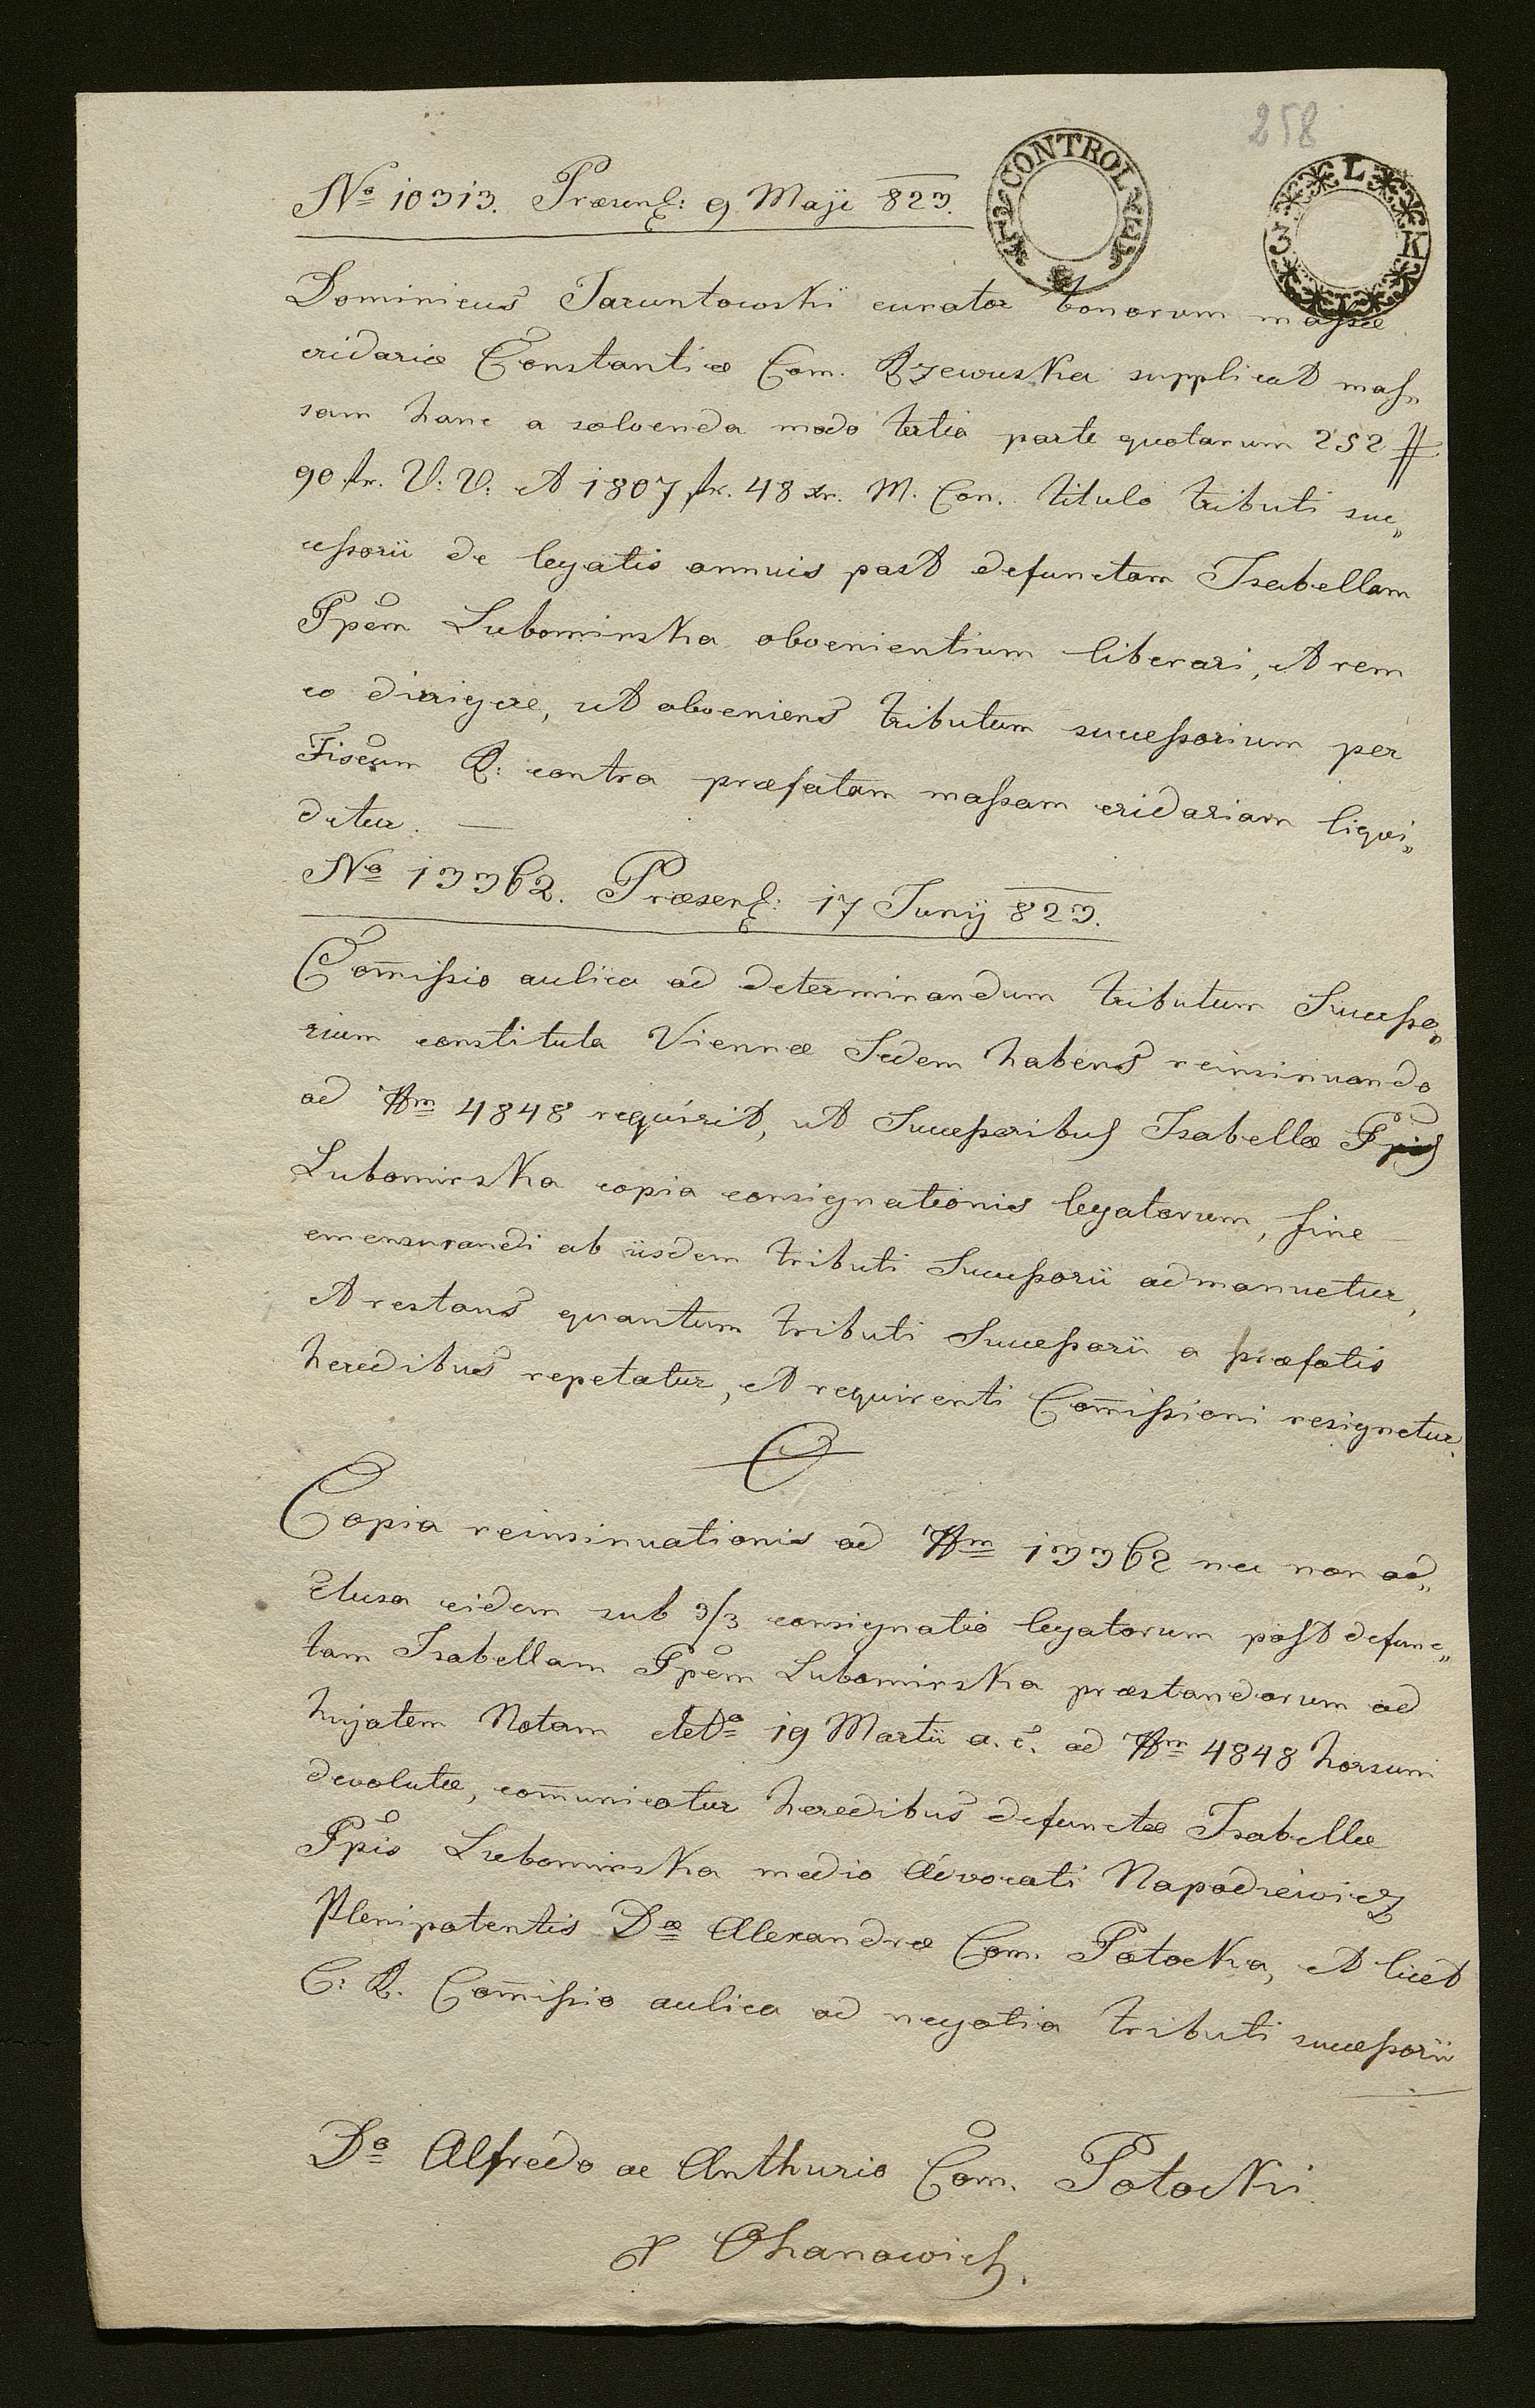 258
CONTROL
L
3 K
No 10313. Præsent: 9 Maji 823.
Dominicus Taruntowski curator bonorum massæ
cridariæ Constantiæ Com. Rzewuska supplicat mas„
sam hanc a solvenda modo tertia parte quotarum 252 #
90 fr. V: V: et 1807 fr. 48 xr. M. Con. titulo tributi suc„
cessorii de legatis annuis post defunctam Isabellam
Ppem Lubomirska obvenientium liberari, et rem
eo dirigere, ut obveniens tributum successorium per
Fiscum R: contra præfatam massam cridariam liqui„
detur. —
No 13362. Præsent: 17 Junij 823.
Com̄issio aulica ad determinandum tributum Successo„
rium constituta Viennæ Sedem habens reinsinuando
ad Nrm 4848 requirit, ut Successoribus Isabellæ Ppis
Lubomirska copia consignationis legatorum, fine
emensurandi ab iisdem tributi Successorii admanuetur,
et restans quantum tributi Successorii a præfatis
heredibus repetatur, et requirenti Com̄issioni resignetur.
Copia reinsinuationis ad Nrm 13362 nec non ad„
clusa eidem sub 3/3 consignatio legatorum post defunc„
tam Isabellam Ppem Lubomirska præstandorum ad
hujatem Notam ddto 19 Martii a. c. ad Nrm 4848 horsum
devolutæ, com̄unicatur heredibus defunctæ Isabellæ
Ppis Lubomirska medio Advocati Napadiewicz
Plenipotentis Dæ Alexandræ Com. Potocka, et licet
C: R. Com̄issio aulica ad negotia tributi successorii
Do Alfredo ac Arthurio Com. Potocki
Ohanowich.